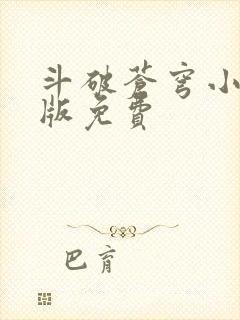 斗破苍穹小
版免費
巴育